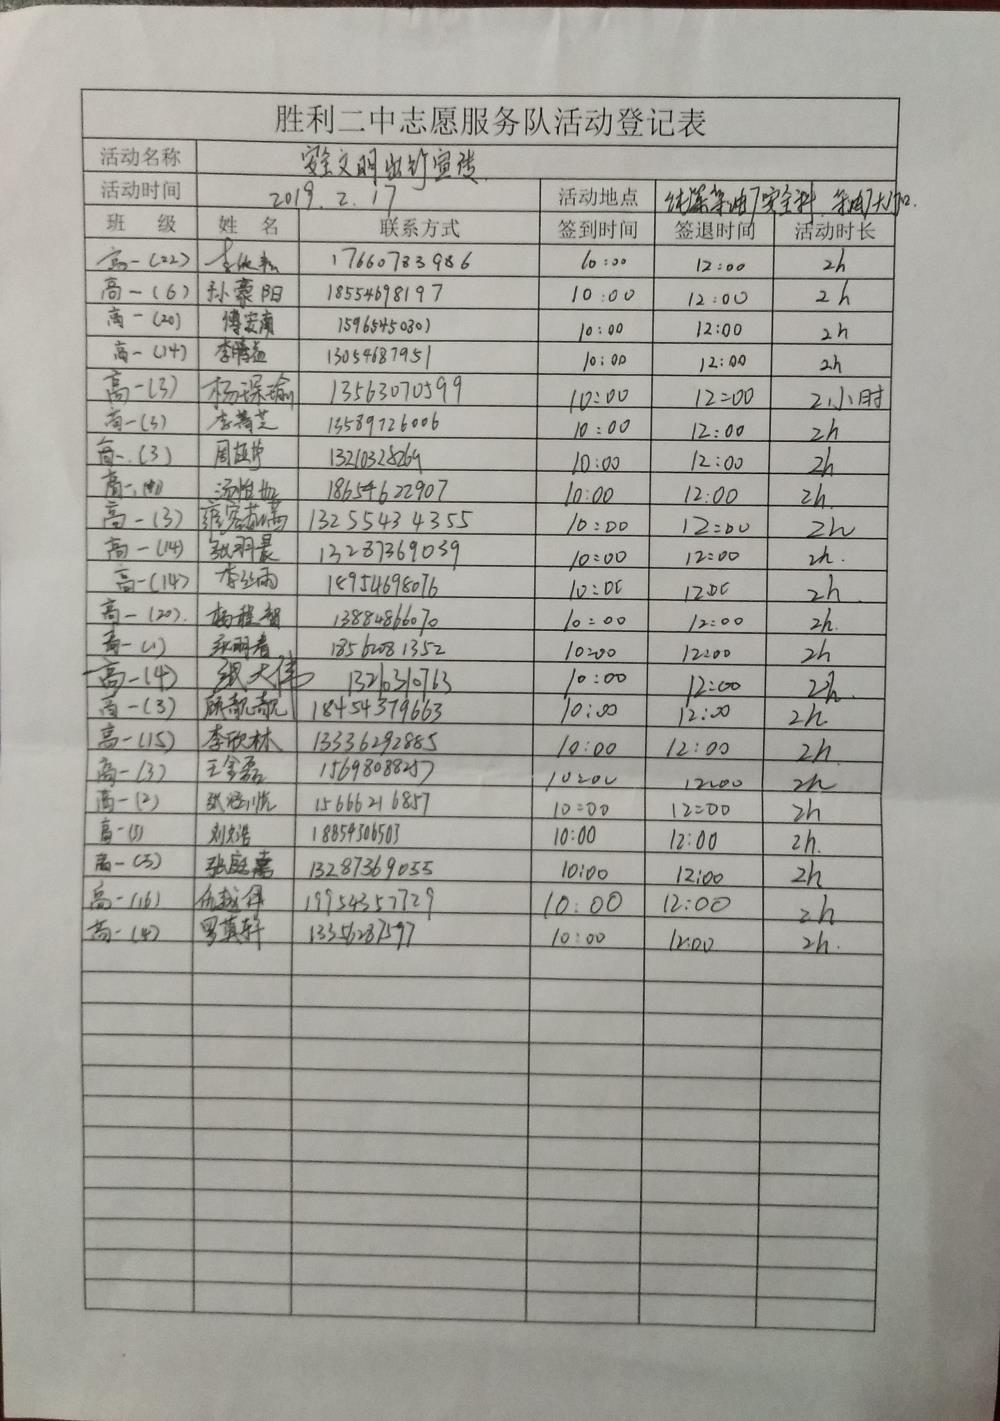 胜利二中志愿服务队活动登记表
活动名称 安全文明出行宣传
活动时间 2019.2.17 活动地点 纯梁采油厂安全科
班 级 姓 名 联系方式 签到时间 签退时间 活动时长
高一(22) 17660783986 10:00 12:00 2h
高一(6) 孙豪阳 18554698197 10:00 12:00 2h
高一(20) 傅安南 15965450301 10:00 12:00 2h
高一(14) 13054687951 10:00 12:00 2h
高一(3) 杨琛瑜 13563070599 10:00 12:00 2小时
高一(3) 李菁芝 13589726006 10:00 12:00 2h
高一(3) 13210328269 10:00 12:00 2h
高一 18654622907 10:00 12:00 2h.
高一(3) 13255434355 10:00 12:00 2h
高一(14) 张羽晨 13287369039 10:00 12:00 2h.
高一(14) 18954698076 10:00 1200 2h
高一(20) 13884866070 10:00 12:00 2h.
高一(1) 18562081352 10:00 12:00 2h
高一(4) 张大伟 13210310763 10:00 12:00 2h.
高一(3) 顾靓靓 18454379663 10:00 12:00 2h
高一(15) 李欣林 13336292885 10:00 12:00 2h.
高一(3) 王金磊 15698088257 10:00 12:00 2h
高一(2) 15666216857 10:00 12:00 2h
高一 刘文浩 18854306503 10:00 12:00 2h.
高一(3) 张庭嘉 13287369055 10:00 12:00 2h
高一(16) 19954357729 10:00 12:00 2h
高一(4) 罗萁轩 13356287597 10:00 12:00 2h.